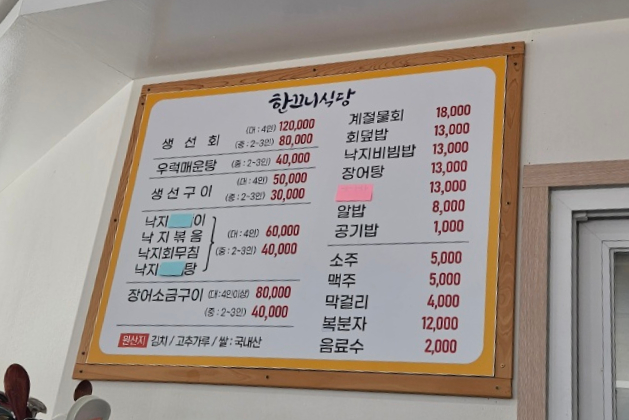 한끄니식당
생선회 (대:4인) 120,000
(중:2~3인) 80,000
우럭매운탕 (중:2~3인) 40,000
생선구이 (대:4인) 50,000
(중:2~3인) 30,000
낙지 이
낙지볶음 (대:4인) 60,000
낙지회무침 (중:2~3인) 40,000
낙지 탕
장어소금구이 (대:4인이상) 80,000
(중:2~3인) 40,000
원산지 김치/고추가루/쌀:국내산
계절물회 18,000
회덮밥 13,000
낙지비빔밥 13,000
장어탕 13,000
13,000
알밥 8,000
공기밥 1,000
소주 5,000
맥주 5,000
막걸리 4,000
복분자 12,000
음료수 2,000